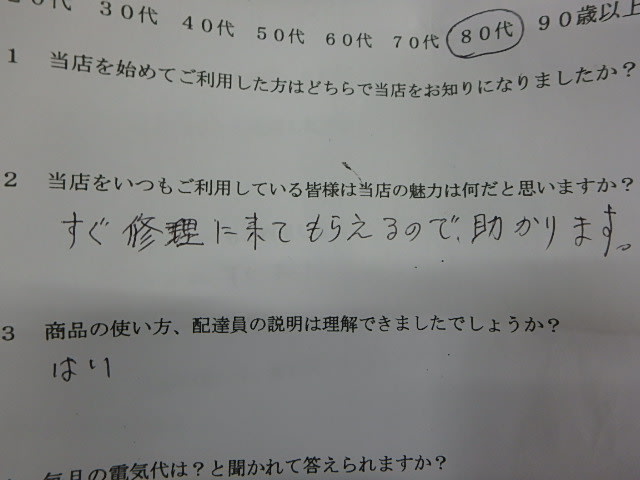 20代 30代 40代 50代 60代 70代 80代 90歳以上
1 当店を始めてご利用した方はどちらで当店をお知りになりましたか?
2 当店をいつもご利用している皆様は当店の魅力は何だと思いますか?
すぐ修理に来てもらえるので、助かります。
3 商品の使い方、配達員の説明は理解できましたでしょうか?
はい
毎月の電気代は?と聞かれて答えられますか?